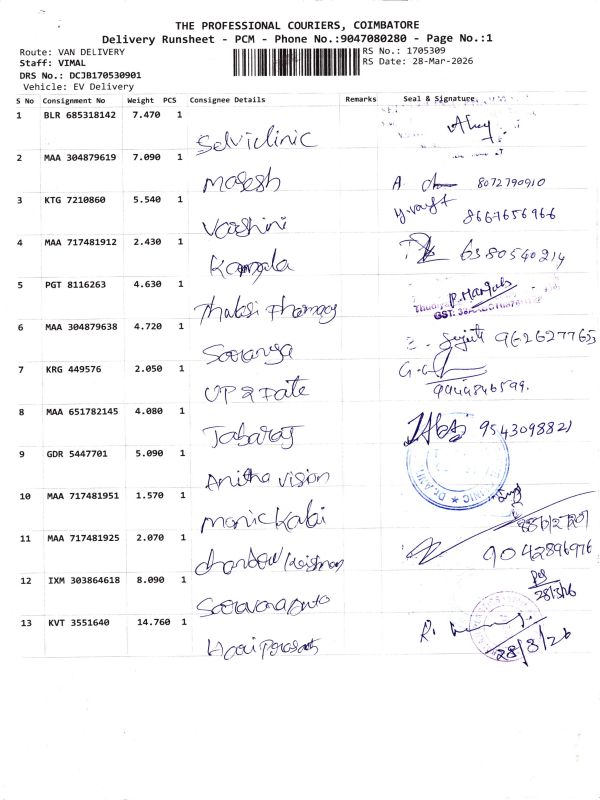 THE PROFESSIONAL COURIERS, COIMBATORE
Delivery Runsheet - PCM - Phone No.:9047080280 - Page No.:1
Route: VAN DELIVERY
RS No.: 1705309
Staff: VIMAL
RS Date: 28-Mar-2026
DRS No.: DCJB170530901
Vehicle: EV Delivery
S No Consignment No Weight PCS Consignee Details Remarks Seal & Signature
1 BLR 685318142 7.470 1
Selvi clinic
2 MAA 304879619 7.090 1
Magesh
A. 8072790910
3 KTG 7210860 5.540 1
Varshini
8667656966
4 MAA 717481912 2.430 1
Kamala
6380540214
5 PGT 8116263 4.630 1
Thulasi Pharmacy
6 MAA 304879638 4.720 1
9626277653
7 KRG 449576 2.050 1
UP 2 Date
9444846599.
8 MAA 651782145 4.080 1
Jabaraj
9543098821
9 GDR 5447701 5.090 1
Anitha vision
10 MAA 717481951 1.570 1
11 MAA 717481925 2.070 1
9042896976
12 IXM 303864618 8.090 1
28/3/26
13 KVT 3551640 14.760 1
Hari Prasath
R.
28/3/26